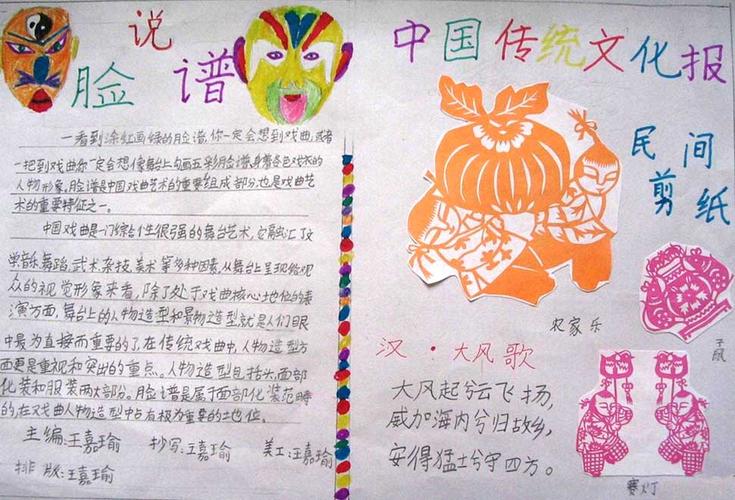 说
脸谱
一看到涂红画绿的脸谱,你一定会想到戏曲,或者
一提到戏曲你一定会想像舞台上勾画五彩脸谱,身着各色戏衣的
人物形象,脸谱是中国戏曲艺术的重要组成部分,也是戏曲艺
术的重要特征之一。
中国戏曲是一门综合性很强的舞台艺术,它融汇了文
学音乐舞蹈,武术、杂技、美术等多种因素,从舞台上呈现给观
众的视觉形象来看,除了处于戏曲核心地位的表
演方面,舞台上的人物造型和景物造型就是人们眼
中最为直接而重要的了,在传统戏曲中,人物造型方
面更是重视和突出的重点。人物造型包括头、面部
化装和服装两大部分。脸谱是属于面部化装范畴
的,在戏曲人物造型中占有极为重要的地位。
主编:王嘉瑜 抄写:王嘉瑜 美工:王嘉瑜
排版:王嘉瑜
中国传统文化报
民间
剪纸
农家乐
子鼠
汉·大风歌
大风起兮云飞扬,
威加海内兮归故乡,
安得猛士兮守四方。
赛灯